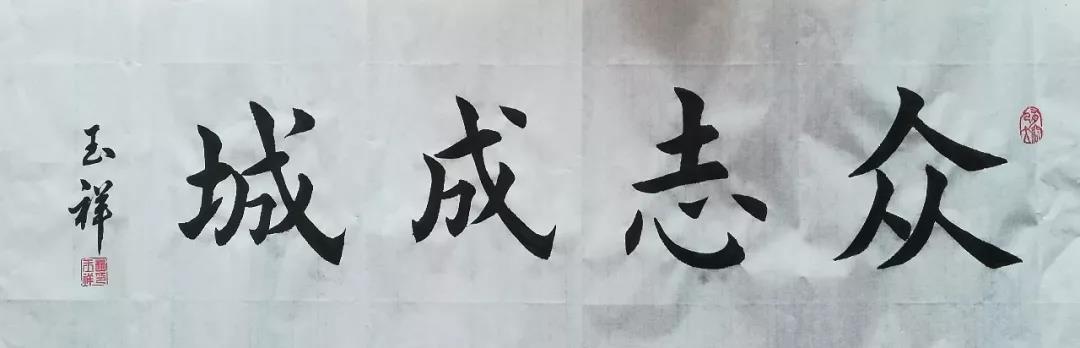 众志成城
玉祥